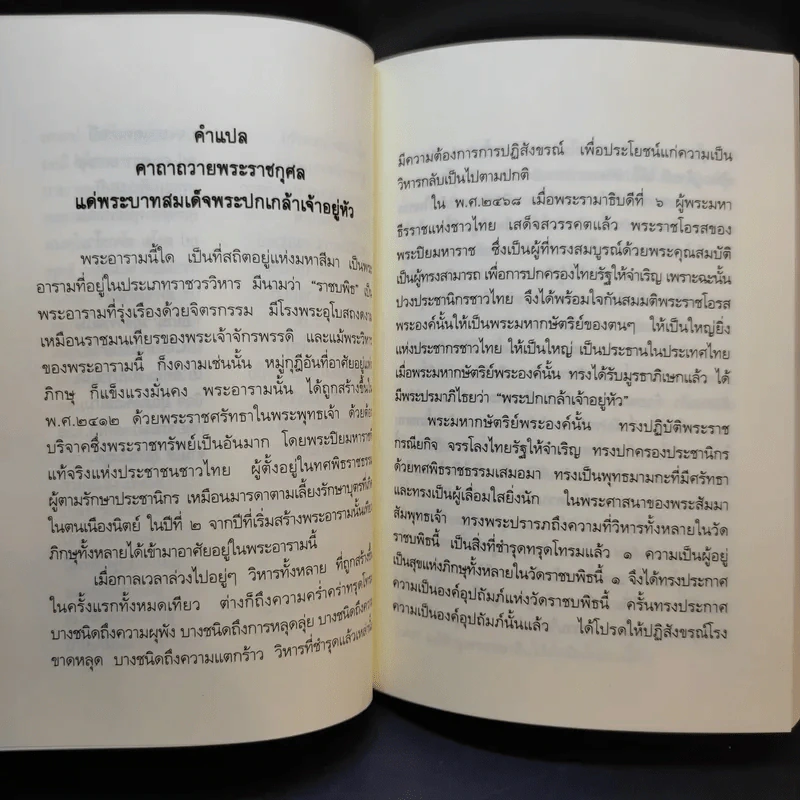 คำแปล
คาถาถวายพระราชกุศล
แด่พระบาทสมเด็จพระปกเกล้าเจ้าอยู่หัว
พระอารามนี้ใด เป็นที่สถิตอยู่แห่งมหาสีมา เป็นพระ
อารามที่อยู่ในประเภทราชวรวิหาร มีนามว่า "ราชบพิธ" เป็น
พระอารามที่รุ่งเรืองด้วยจิตรกรรม มีโรงพระอุโบสถงดงาม
เหมือนราชมนเทียรของพระเจ้าจักรพรรดิ และแม้พระวิหาร
ของพระอารามนี้ ก็งดงามเช่นนั้น หมู่กุฎีอันที่อาศัยอยู่แห่ง
ภิกษุ ก็แข็งแรงมั่นคง พระอารามนั้น ได้ถูกสร้างขึ้นใน
พ.ศ.๒๔๑๒ ด้วยพระราชศรัทธาในพระพุทธเจ้า ด้วยต้อง
บริจาคซึ่งพระราชทรัพย์เป็นอันมาก โดยพระปิยมหาราช
แท้จริงแห่งประชาชนชาวไทย ผู้ตั้งอยู่ในทศพิธราชธรรม
ผู้ตามรักษาประชานิกร เหมือนมารดาตามเลี้ยงรักษาบุตรที่เกิด
ในตนเนืองนิตย์ ในปีที่ ๒ จากปีที่เริ่มสร้างพระอารามนั้นเทียว
ภิกษุทั้งหลายได้เข้ามาอาศัยอยู่ในพระอารามนี้
เมื่อกาลเวลาล่วงไปอยู่ๆ วิหารทั้งหลาย ที่ถูกสร้างขึ้น
ในครั้งแรกทั้งหมดเทียว ต่างก็ถึงความคร่ำคร่าทรุดโทรม
บางชนิดถึงความผุพัง บางชนิดถึงการหลุดลุ่ย บางชนิดถึงความ
ขาดหลุด บางชนิดถึงความแตกร้าว วิหารที่ชำรุดแล้วเหล่านั้น
มีความต้องการการปฏิสังขรณ์ เพื่อประโยชน์แก่ความเป็น
วิหารกลับเป็นไปตามปกติ
ใน พ.ศ.๒๔๖๘ เมื่อพระรามาธิบดีที่ ๖ ผู้พระมหา
ธีรราชแห่งชาวไทย เสด็จสวรรคตแล้ว พระราชโอรสของ
พระปิยมหาราช ซึ่งเป็นผู้ที่ทรงสมบูรณ์ด้วยพระคุณสมบัติ
เป็นผู้ทรงสามารถ เพื่อการปกครองไทยรัฐให้จำเริญ เพราะฉะนั้น
ปวงประชานิกรชาวไทย จึงได้พร้อมใจกันสมมติพระราชโอรส
พระองค์นั้นให้เป็นพระมหากษัตริย์ของตนๆ ให้เป็นใหญ่ยิ่ง
แห่งประชากรชาวไทย ให้เป็นใหญ่ เป็นประธานในประเทศไทย
เมื่อพระมหากษัตริย์พระองค์นั้น ทรงได้รับมูรธาภิเษกแล้ว ได้
มีพระปรมาภิไธยว่า "พระปกเกล้าเจ้าอยู่หัว"
พระมหากษัตริย์พระองค์นั้น ทรงปฏิบัติพระราช
กรณียกิจ จรรโลงไทยรัฐให้จำเริญ ทรงปกครองประชานิกร
ด้วยทศพิธราชธรรมเสมอมา ทรงเป็นพุทธมามกะที่มีศรัทธา
และทรงเป็นผู้เลื่อมใสยิ่งนัก ในพระศาสนาของพระสัมมา
สัมพุทธเจ้า ทรงพระปรารภถึงความที่วิหารทั้งหลายในวัด
ราชบพิธนี้ เป็นสิ่งที่ชำรุดทรุดโทรมแล้ว ๑ ความเป็นผู้อยู่
เป็นสุขแห่งภิกษุทั้งหลายในวัดราชบพิธนี้ ๑ จึงได้ทรงประกาศ
ความเป็นองค์อุปถัมภ์แห่งวัดราชบพิธนี้ ครั้นทรงประกาศ
ความเป็นองค์อุปถัมภ์นั้นแล้ว ได้โปรดให้ปฏิสังขรณ์โรง